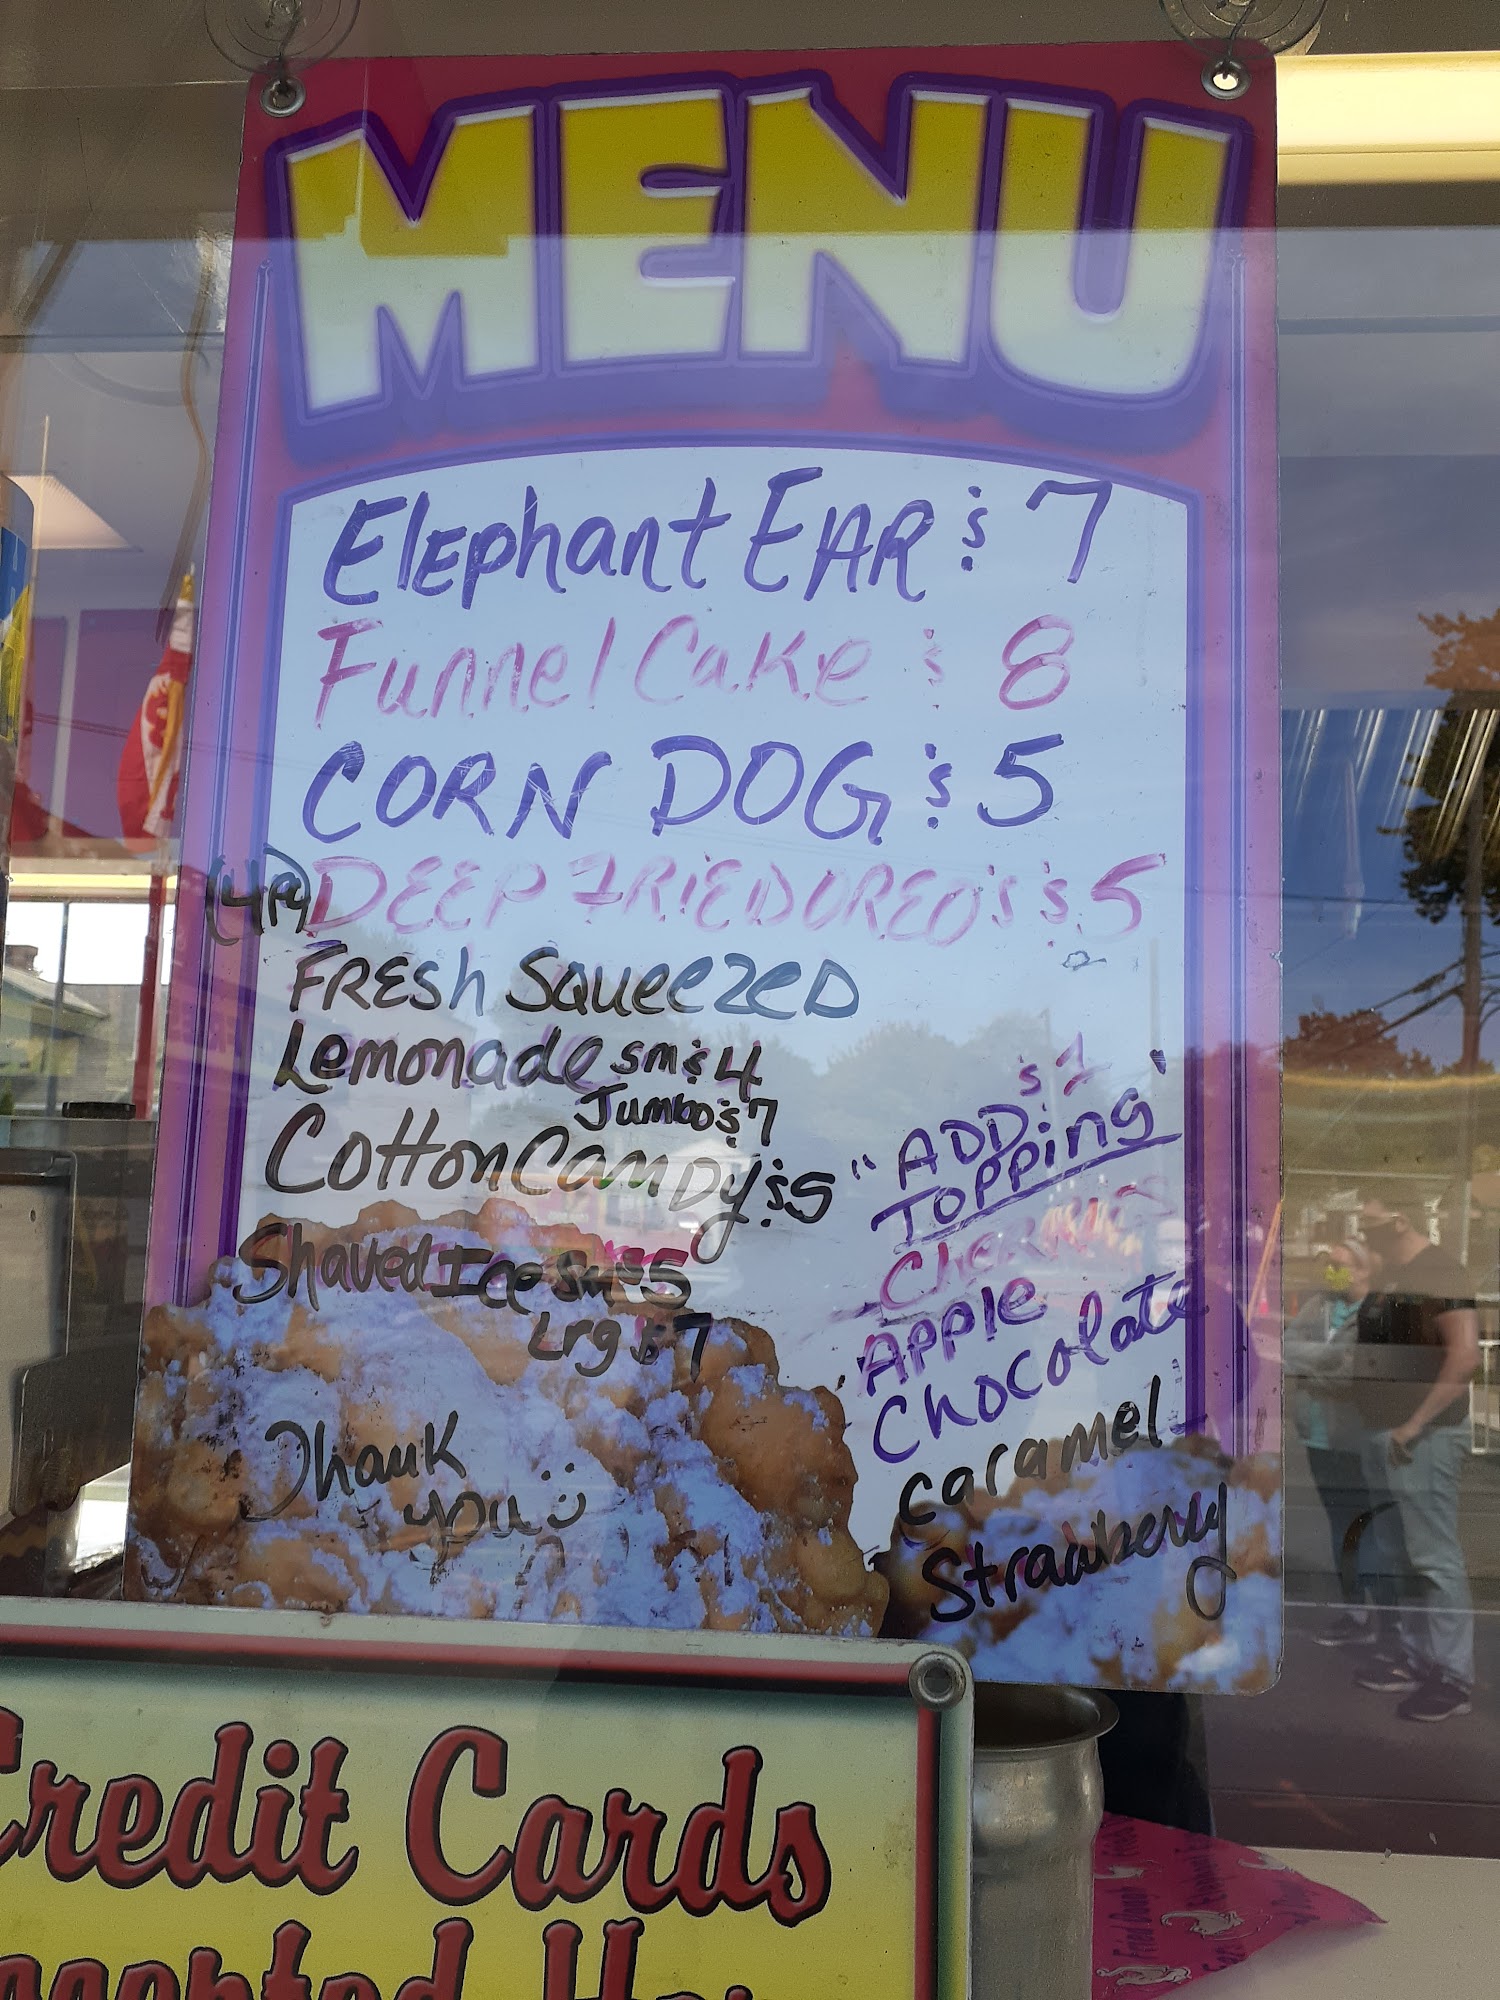 MENU
ElEphant EAR $ 7
Funnel Cake $ 8
CORN DOG $ 5
DEEP FRIED OREO'S $ 5
FRESh SqueezeD
Lemonade sm $ 4
Jumbo $ 7
Cotton CanDy $ 5
Shaved Ice Sm $ 5
Lrg $ 7
Thank
you
$ 1
"ADD
TOPPing"
Cherries
APPle
Chocolate
caramel
Strawberry
Credit Cards